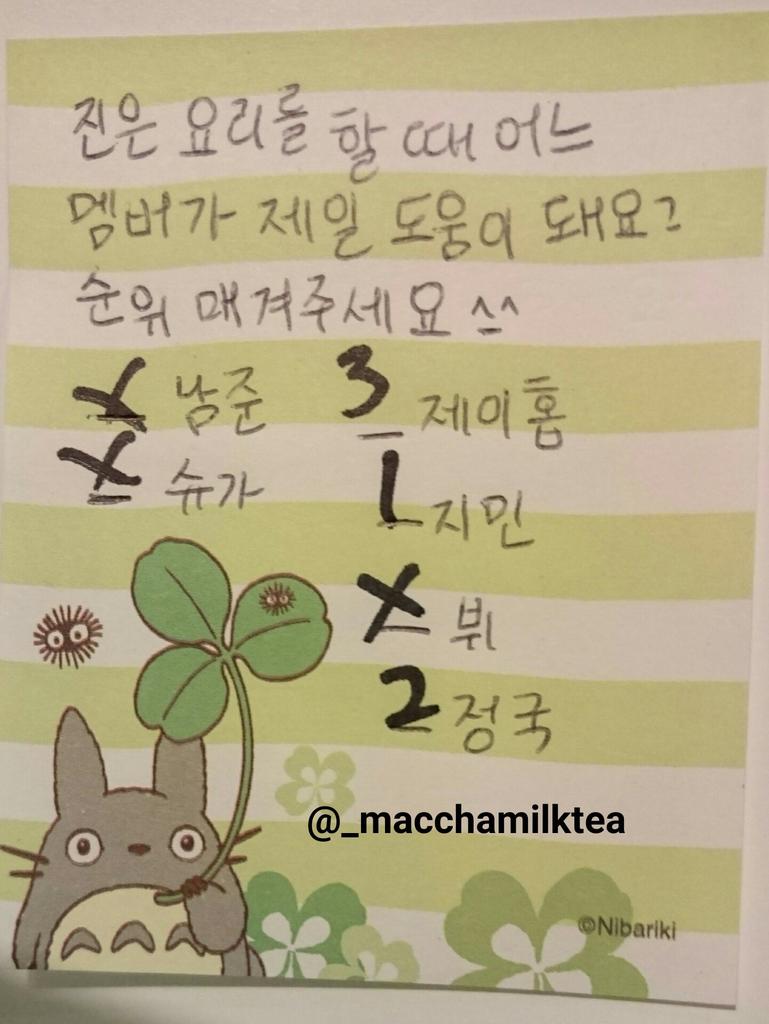 진은 요리를 할 때 어느
멤버가 제일 도움이 돼요?
순위 매겨주세요 ^^
X 남준 3 제이홉
X 슈가 1 지민
X 뷔
2 정국
@_macchamilktea
©Nibariki